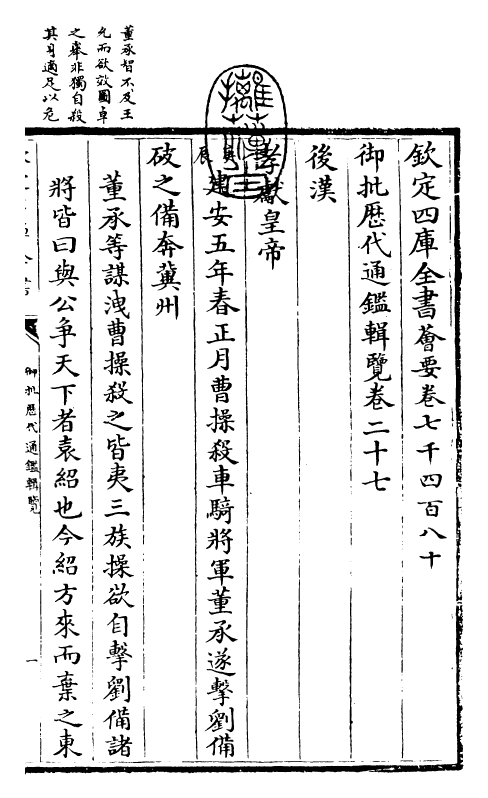 欽定四庫全書薈要卷七千四百八十
御批歷代通鑑輯覽卷二十七
後漢
孝獻皇帝
庚辰
建安五年春正月曹操殺車騎將軍董承遂擊劉備
破之備奔冀州
董承等謀洩曹操殺之皆夷三族操欲自擊劉備諸
將皆曰與公爭天下者袁紹也今紹方來而棄之東
董承智不及王
允而欲效圖卓
之舉非獨自殺
其身適足以危
御批歷代通鑑輯覽
一